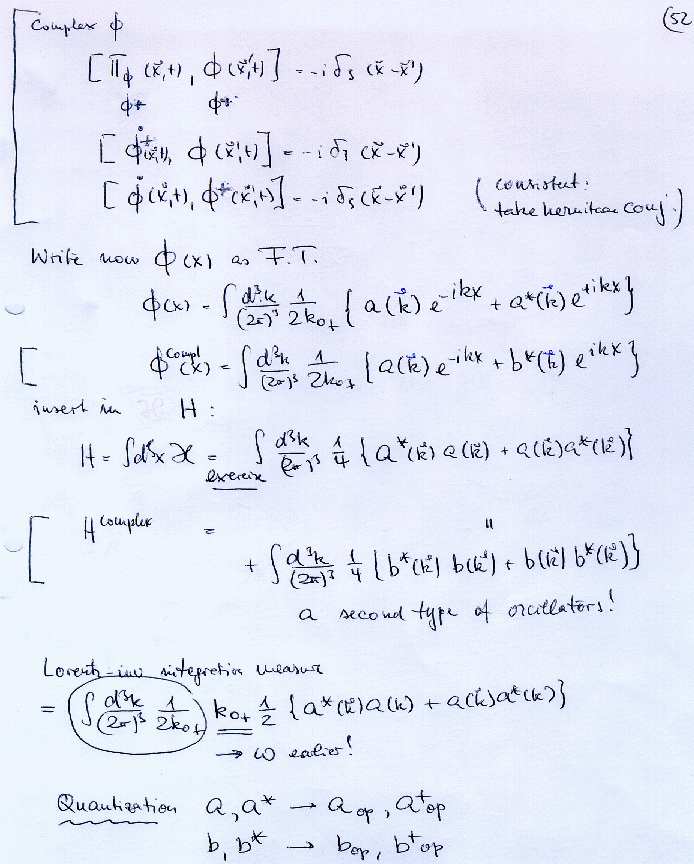 (52)
Complex ϕ
[Π_ϕ (x⃗,t), ϕ(x⃗',t)] = -i δ₃ (x⃗-x⃗')
ϕ⁺ ϕ⁺
[ϕ̇⁺(x⃗,t), ϕ(x⃗',t)] = -i δ₃ (x⃗-x⃗')
[ϕ̇(x⃗,t), ϕ⁺(x⃗',t)] = -i δ₃ (x⃗-x⃗') (consistent:
take hermitean conj.)
Write now ϕ(x) as F.T.
ϕ(x) = ∫ d³k/(2π)³ 1/2k₀₊ { a(k⃗) e^{-ikx} + a*(k⃗) e^{+ikx} }
ϕ^{compl}(x) = ∫ d³k/(2π)³ 1/2k₀₊ { a(k⃗) e^{-ikx} + b*(k⃗) e^{ikx} }
insert in H :
H = ∫d³x ℋ = ∫ d³k/(2π)³ 1/4 { a*(k⃗) a(k⃗) + a(k⃗) a*(k⃗) }
exercise
H^{complex} = "
+ ∫ d³k/(2π)³ 1/4 { b*(k⃗) b(k⃗) + b(k⃗) b*(k⃗) }
a second type of oscillators!
Lorentz-inv integration measure
= ∫ d³k/(2π)³ 1/2k₀₊ k₀₊ 1/2 { a*(k⃗) a(k) + a(k⃗) a*(k) }
→ ω earlier!
Quantization a, a* → a_op, a⁺_op
b, b* → b_op, b⁺_op